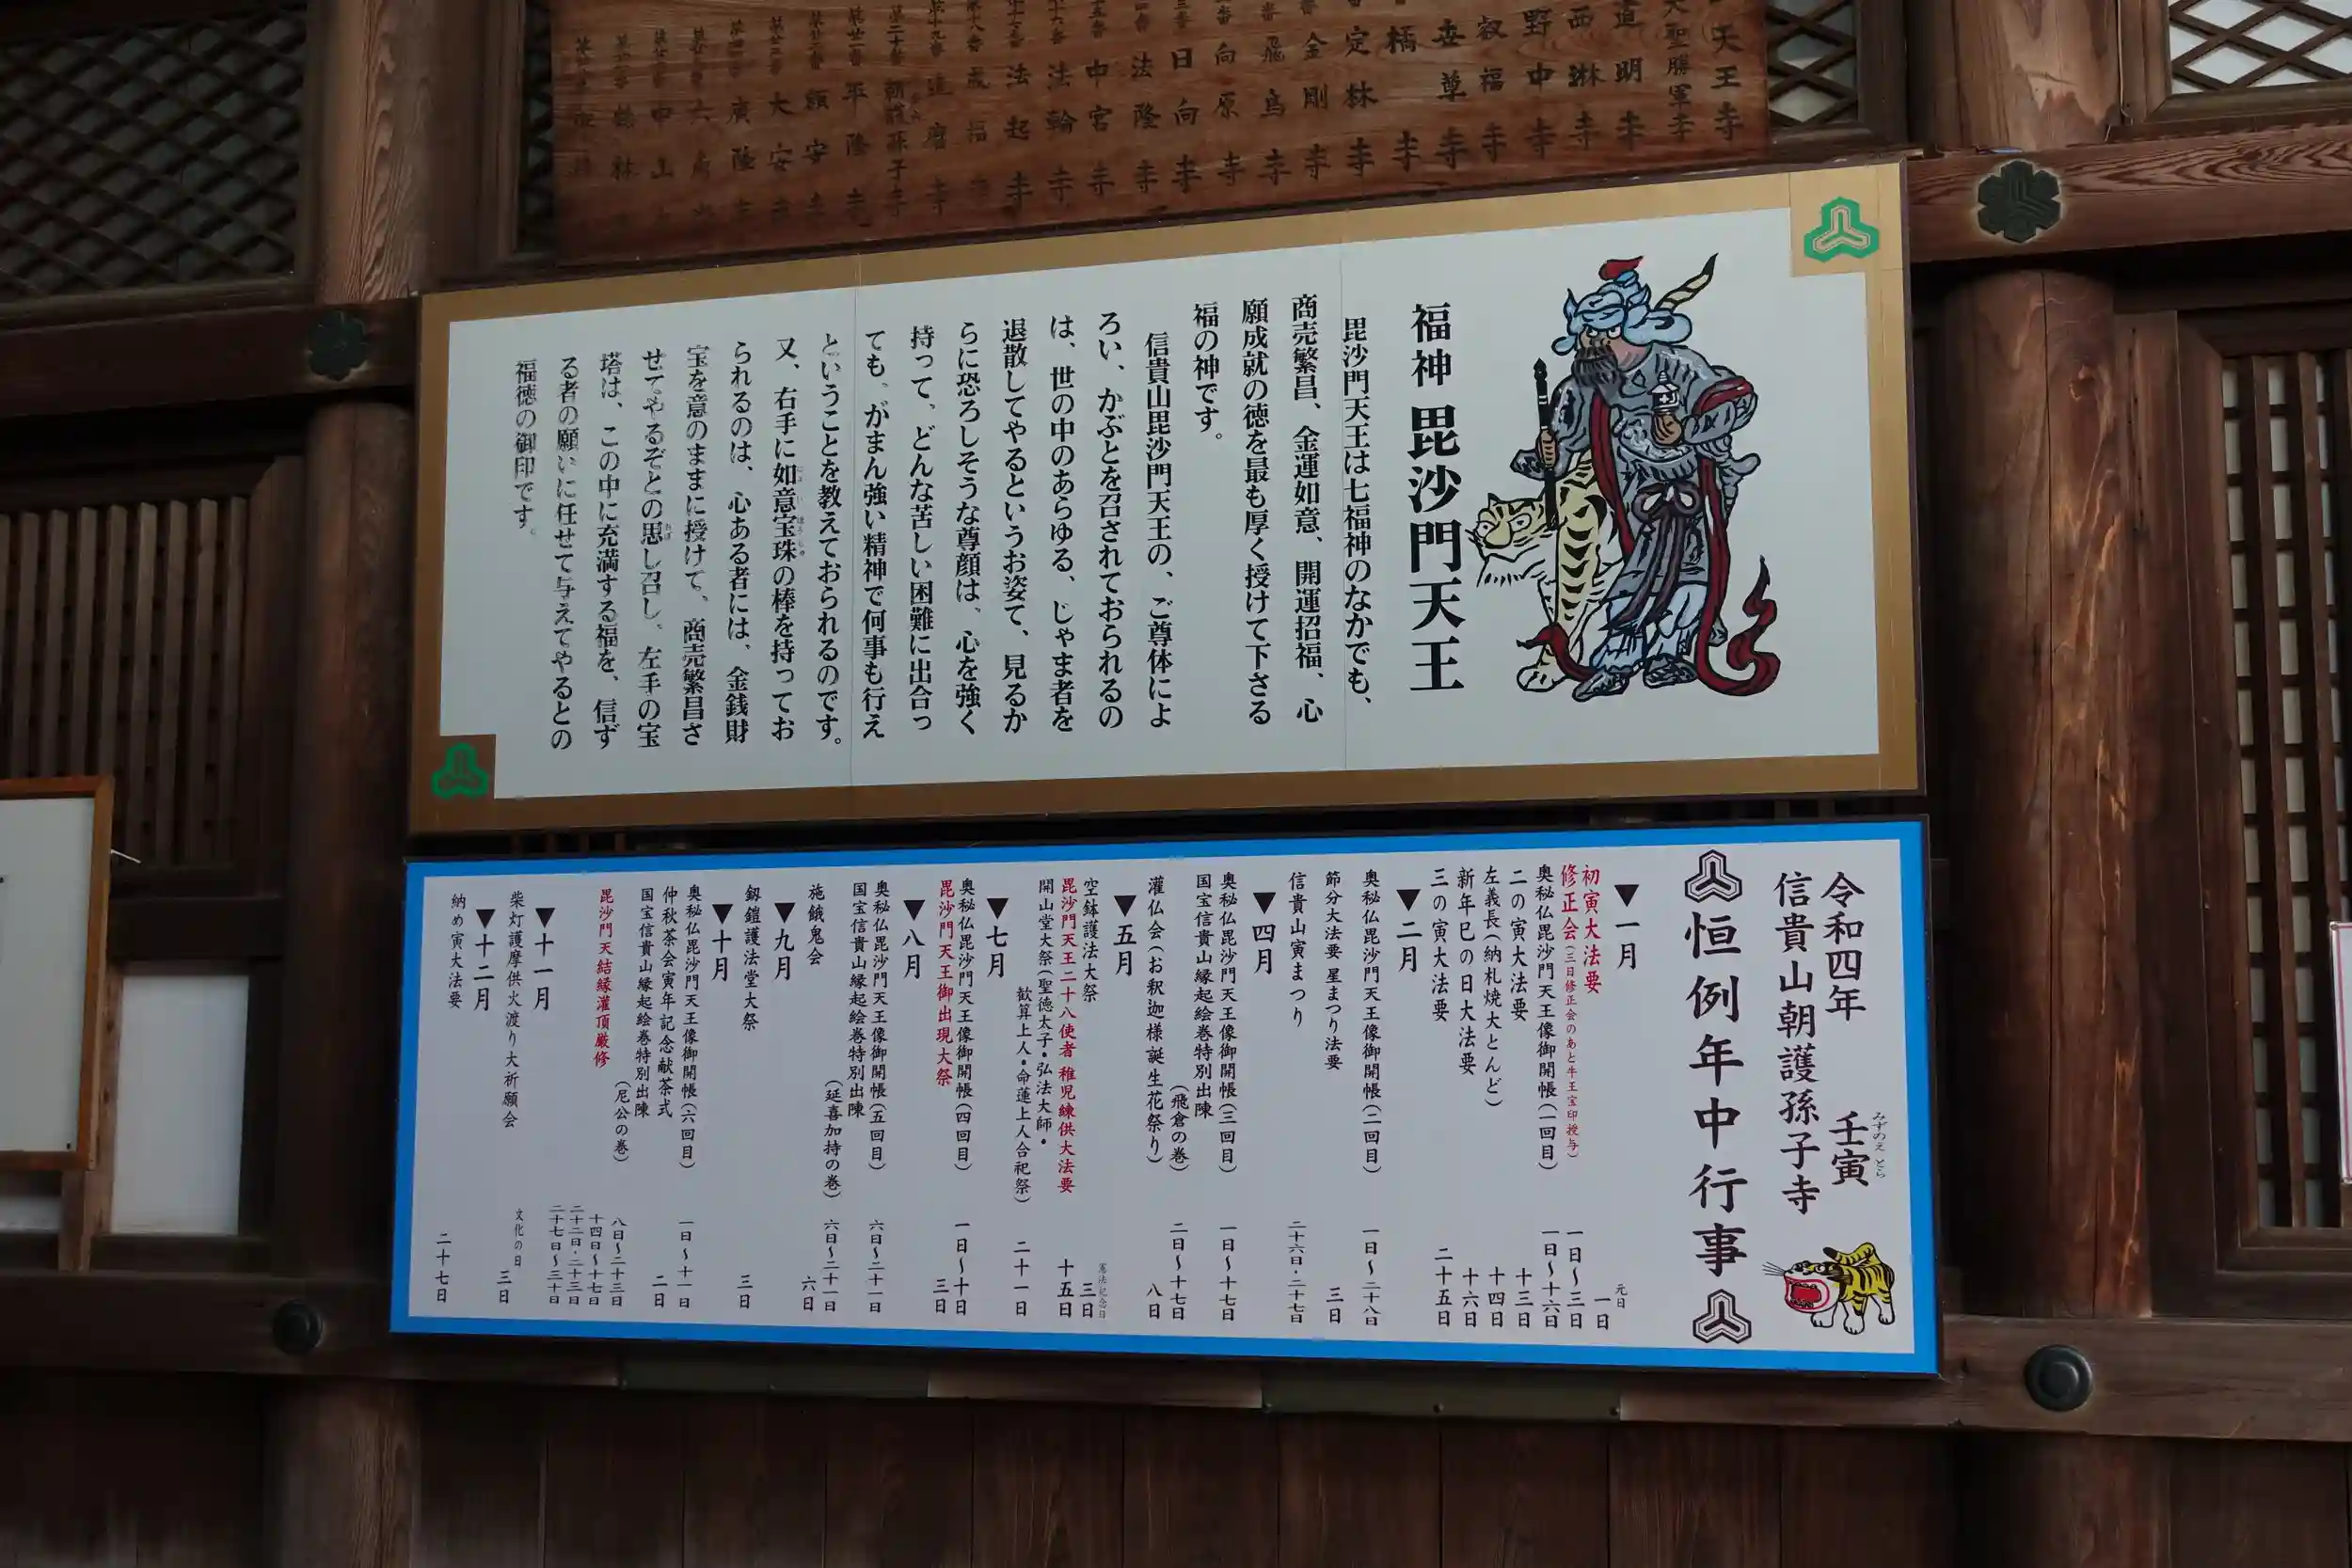 天王寺
大聖勝軍寺
道明寺
西琳寺
野中寺
叡福寺
橘寺
定林寺
金剛寺
飛鳥寺
向原寺
日向寺
法隆寺
中宮寺
法輪寺
法起寺
達磨寺
朝護孫子寺
平隆寺
額安寺
大安寺
廣隆寺
中山
福神 毘沙門天王
毘沙門天王は七福神のなかでも、
商売繁昌、金運如意、開運招福、心
願成就の徳を最も厚く授けて下さる
福の神です。
信貴山毘沙門天王の、ご尊体によ
ろい、かぶとを召されておられるの
は、世の中のあらゆる、じゃま者を
退散してやるというお姿て、見るか
らに恐ろしそうな尊顔は、心を強く
持って、どんな苦しい困難に出合っ
ても、がまん強い精神で何事も行え
ということを教えておられるのです。
又、右手に如意宝珠の棒を持ってお
られるのは、心ある者には、金銭財
宝を意のままに授けて、商売繁昌さ
せてやるぞとの思し召し、左手の宝
塔は、この中に充満する福を、信ず
る者の願いに任せて与えてやるとの
福徳の御印です。
令和四年 壬寅
みずのえ とら
信貴山朝護孫子寺
恒例年中行事
▼一月
初寅大法要 元日 一日
修正会(三日修正会のあと牛王宝印授与) 一日〜三日
奥秘仏毘沙門天王像御開帳(一回目) 一日〜十六日
二の寅大法要 十三日
左義長(納札焼大とんど) 十四日
新年巳の日大法要 十六日
三の寅大法要 二十五日
▼二月
奥秘仏毘沙門天王像御開帳(二回目) 一日〜二十八日
節分大法要 星まつり法要 三日
信貴山寅まつり 二十六日・二十七日
▼四月
奥秘仏毘沙門天王像御開帳(三回目) 一日〜十七日
国宝信貴山縁起絵巻特別出陳
(飛倉の巻) 二日〜十七日
灌仏会(お釈迦様誕生花祭り) 八日
▼五月
空鉢護法大祭 憲法記念日 三日
毘沙門天王二十八使者 稚児練供大法要 十五日
開山堂大祭(聖徳太子・弘法大師・
歓算上人・命蓮上人合祀祭) 二十一日
▼七月
奥秘仏毘沙門天王像御開帳(四回目) 一日〜十日
毘沙門天王御出現大祭 三日
▼八月
奥秘仏毘沙門天王像御開帳(五回目) 六日〜二十一日
国宝信貴山縁起絵巻特別出陳
(延喜加持の巻) 六日〜二十一日
施餓鬼会 六日
▼九月
剱鎧護法堂大祭 三日
▼十月
奥秘仏毘沙門天王像御開帳(六回目) 一日〜十一日
仲秋茶会寅年記念献茶式 二日
国宝信貴山縁起絵巻特別出陳
(尼公の巻) 八日〜二十三日
毘沙門天結縁灌頂厳修 十四日〜十七日
二十二日・二十三日
二十七日〜三十日
▼十一月
柴灯護摩供火渡り大祈願会 文化の日 三日
▼十二月
納め寅大法要 二十七日